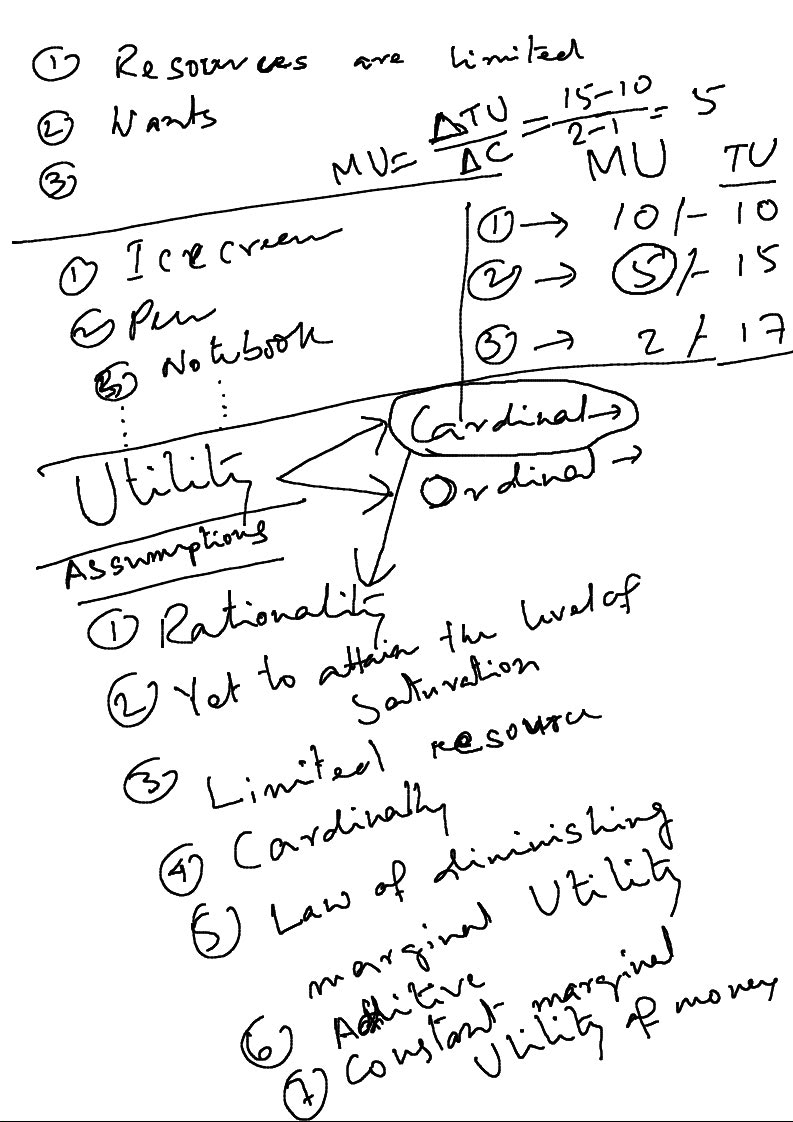 ① Resources are limited
② Wants
③
MU = ΔTU/ΔC = 15-10/2-1 = 5
MU TU
① → 10/- 10
② → 5/- 15
③ → 2/- 17
① Icecream
② Pen
③ Notebook
Utility
Cardinal →
Ordinal →
Assumptions
① Rationality
② Yet to attain the level of
saturation
③ Limited resource
④ Cardinally
⑤ Law of diminishing
marginal Utility
⑥ Additive
⑦ Constant marginal
Utility of money